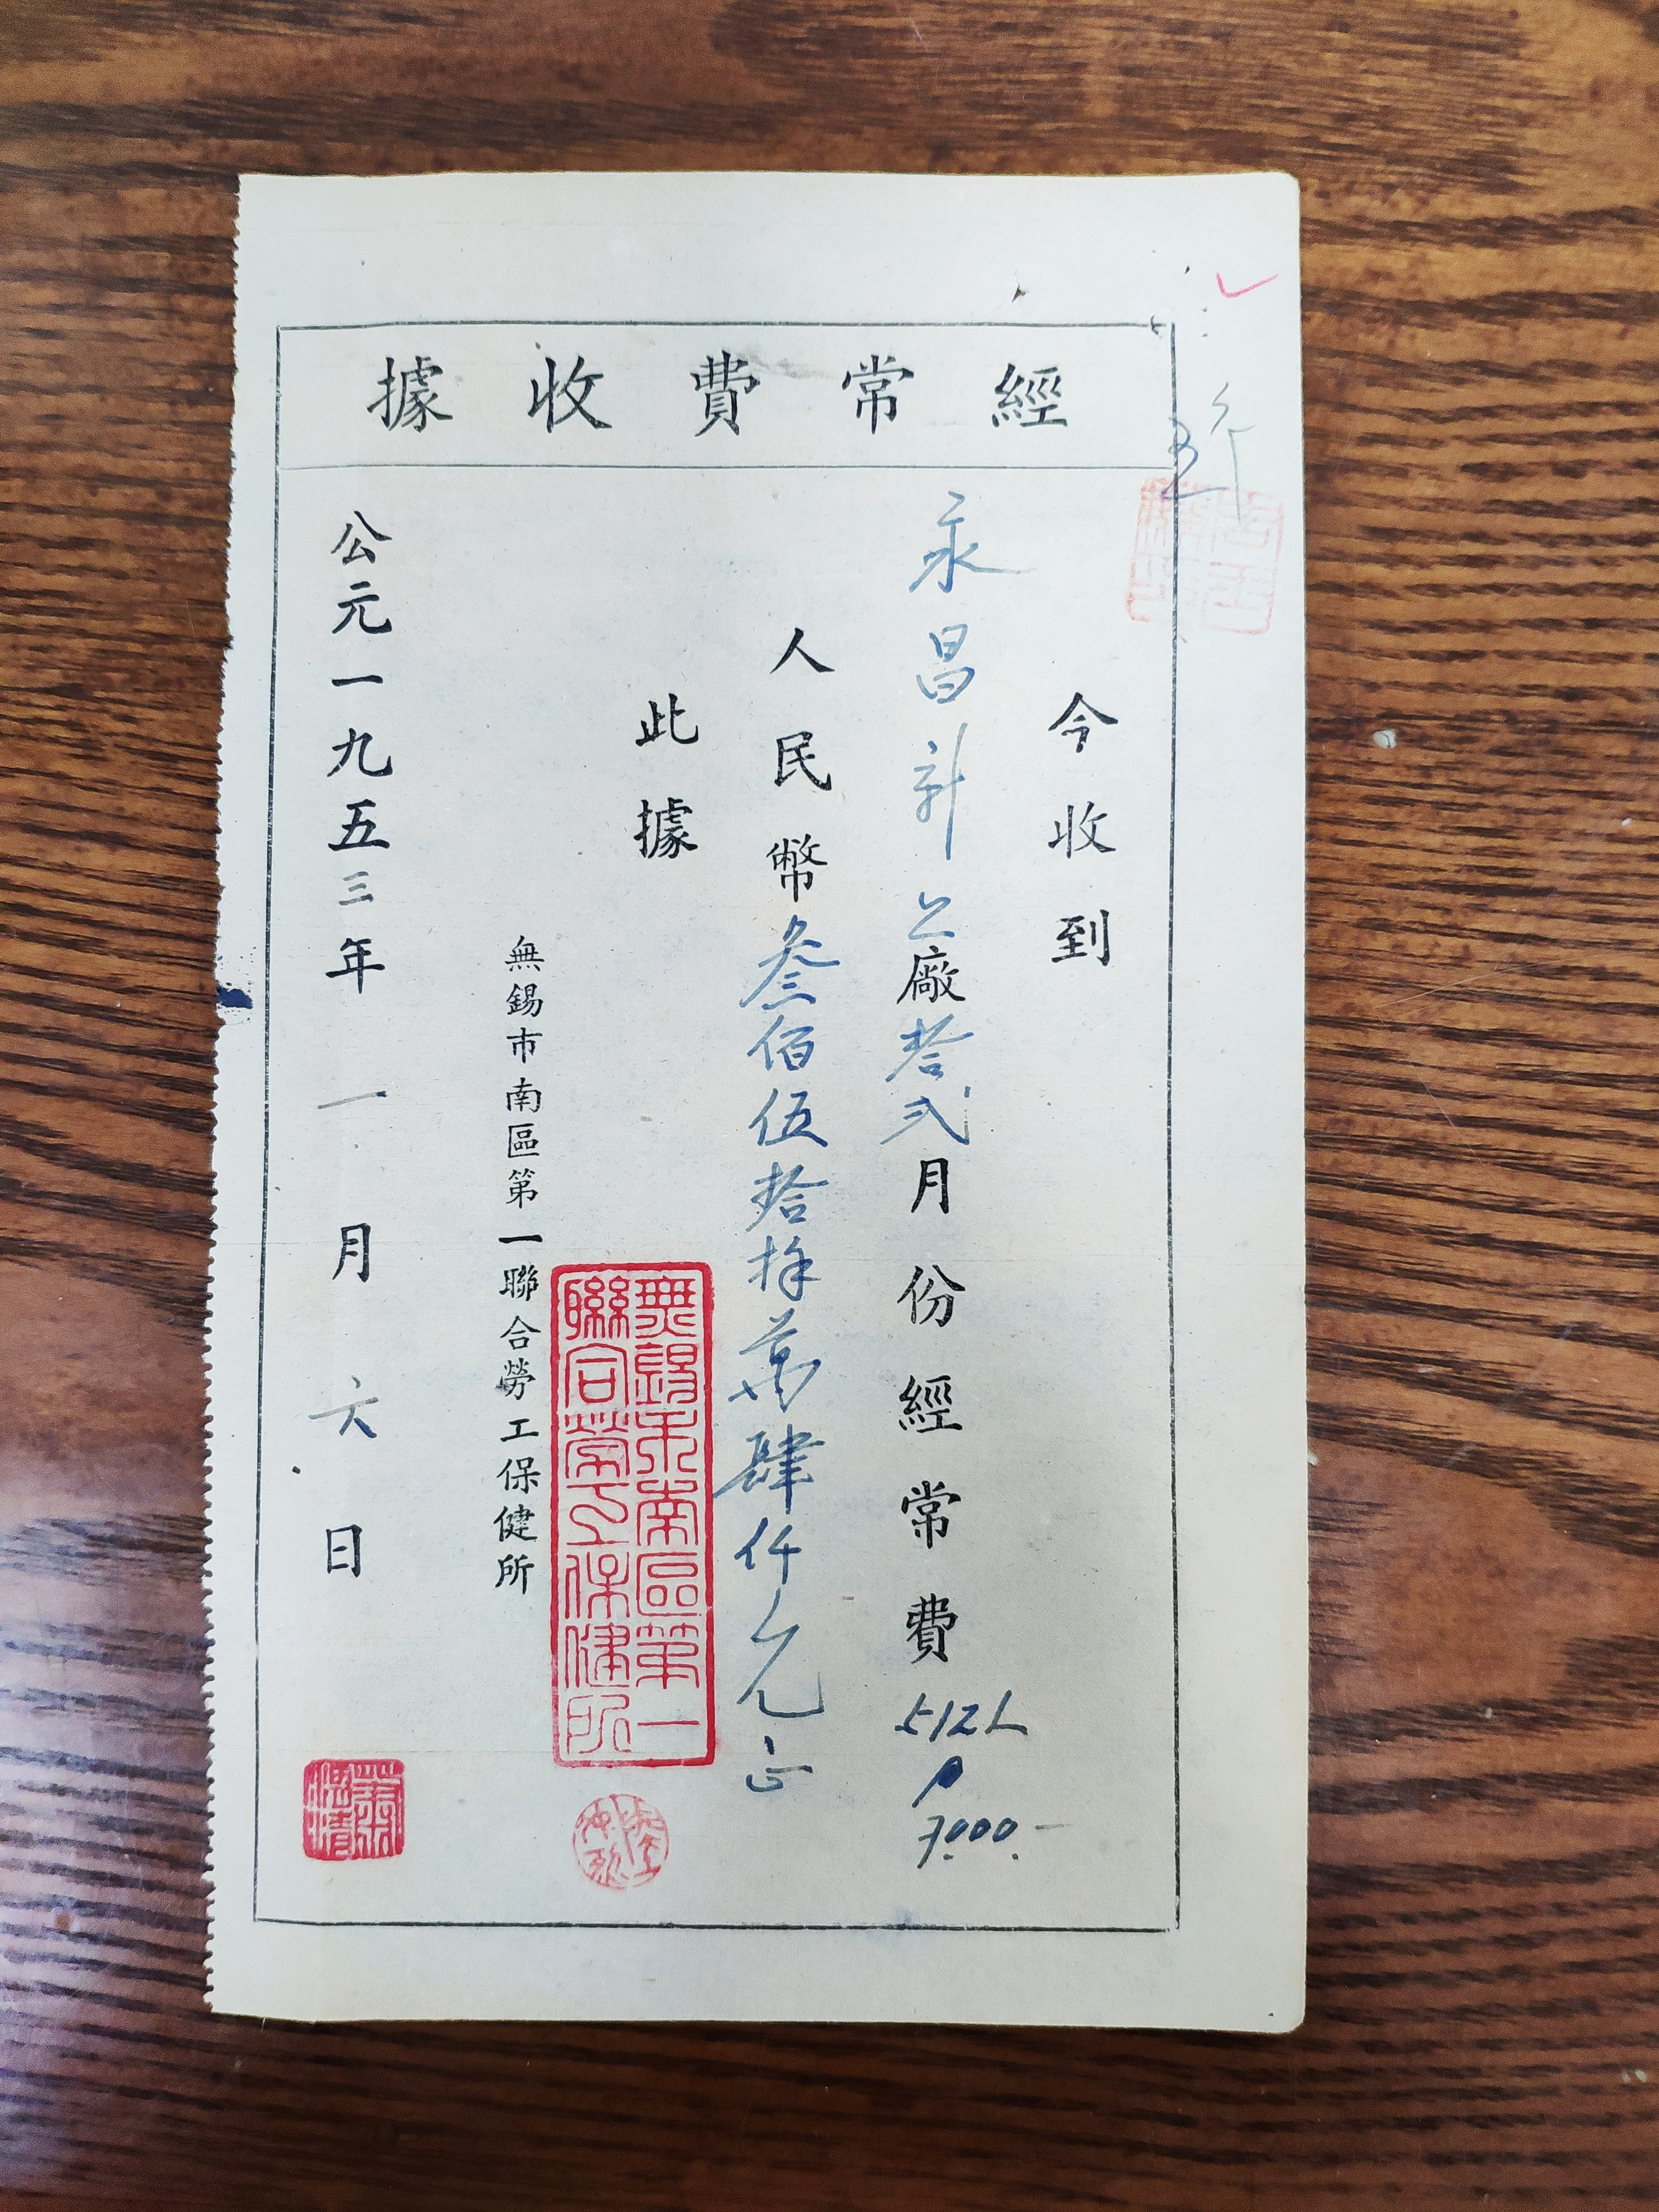 經常費收據
今收到
永昌新廠拾弍月份經常費
512
7.000.-
人民幣叁佰伍拾捌萬肆仟元正
此據
無錫市南區第一
聯合勞工保健所
無錫市南區第一聯合勞工保健所
公元一九五三年一月六日